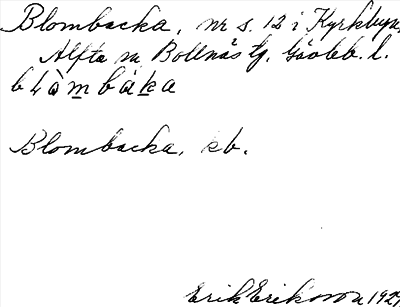 Blombacka, nr s. 12 i Kyrkbyn,
Alfta sn Bollnäs tg. Gävleb. l.
blåmbaka
Blombacka, kb.
Erik Erikson 1929